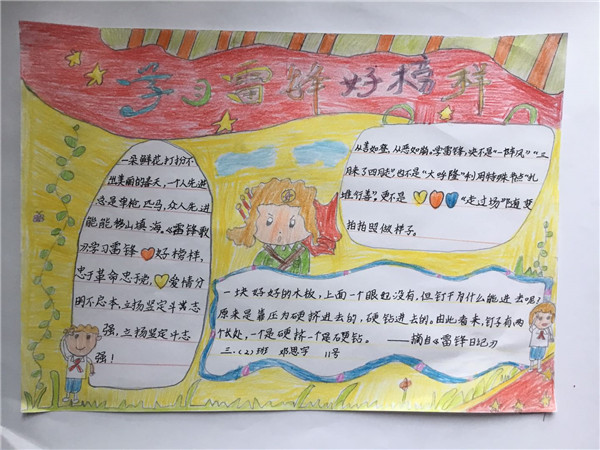 学习雷锋好榜样
一朵鲜花打扮不
出美丽的春天,一个人先进
总是单枪匹马,众人先进
能能移山填海。《雷锋歌
》学习雷锋好榜样,
忠于革命忠于党,爱憎分
明不忘本,立场坚定斗志
强,立场坚定斗志
强!
从善如登,从恶如崩。学雷锋,决不是“一阵风”“三
月来了四月走”也不是“大呼隆”利用特殊节点“扎
堆行善”。更不是“走过场”
拍拍照做样子。
一块好好的木板,上面一个眼也没有,但钉子为什么能进去呢?
原来是靠压力硬挤进去的,硬钻进去的。因此看来,钉子有两
个长处,一个是硬挤一个是硬钻。——摘自《雷锋日记》
三.(2)班 邓思宇 11号